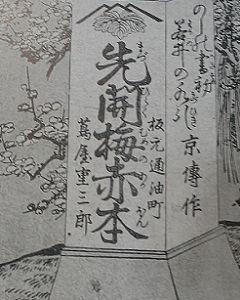 の書初
若井の
京傳作
板元通油町
先開梅赤本
蔦屋重三郎